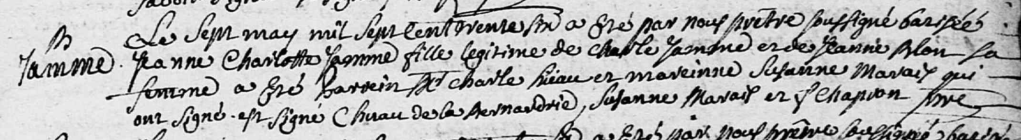 B
Jamme
Le sept may mil sept cent trente six a esté par nous prêtre soussigné batisée
Jeanne Charlotte Jamme fille legitime de Charle Jamme et de Jeanne Blon sa
femme a eté parrein Charle huau et mareinne Susanne Marais qui
ont signé. est signé Chuau de la Bernardrie, Susanne Marais et Chapron ptre